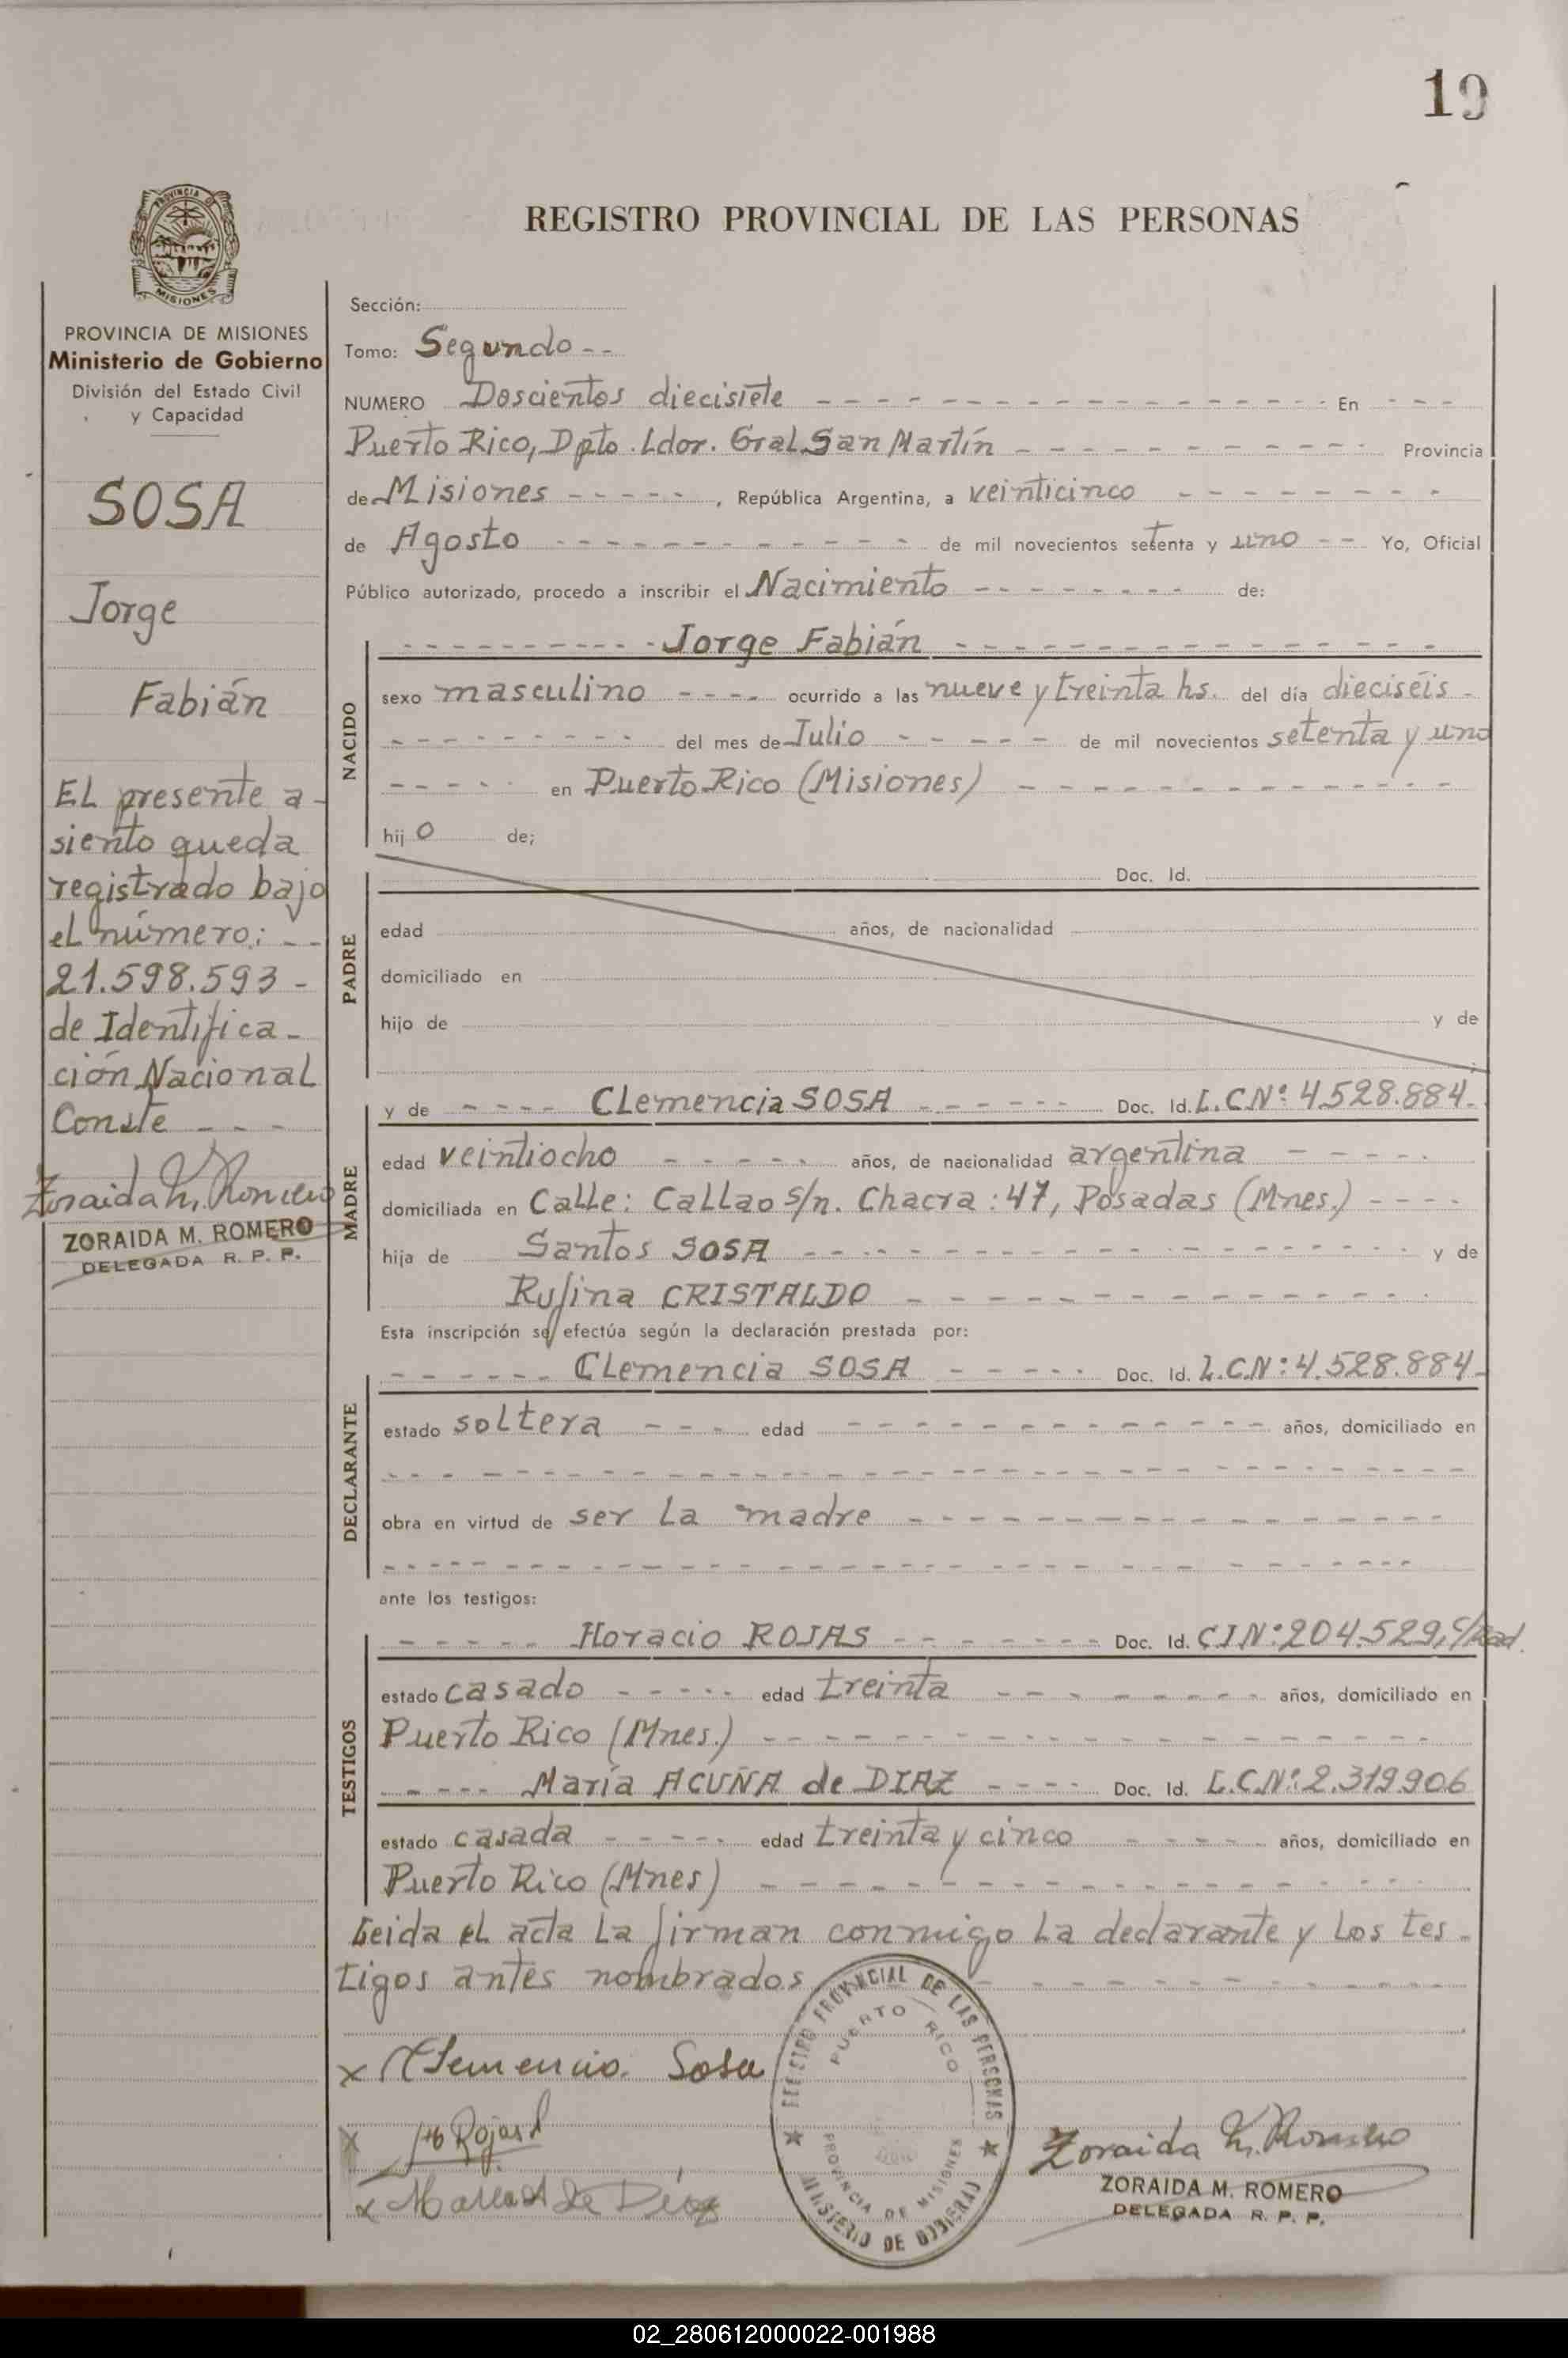 19
REGISTRO PROVINCIAL DE LAS PERSONAS
PROVINCIA
MISIONES
PROVINCIA DE MISIONES
Ministerio de Gobierno
División del Estado Civil
y Capacidad
SOSA
Jorge
Fabián
EL presente a-
siento queda
registrado bajo
el número: - -
21.598.593 -
de Identifica-
ción Nacional
Conste - - -
Zoraida M. Romero
ZORAIDA M. ROMERO
DELEGADA R. P. P.
Sección:
Tomo: Segundo - -
NUMERO Doscientos diecisiete - - - En - - -
Puerto Rico, Dpto. Ldor. Gral. San Martín - - - Provincia
de Misiones - - - , República Argentina, a veinticinco - - -
de Agosto - - - de mil novecientos setenta y uno - - Yo, Oficial
Público autorizado, procedo a inscribir el Nacimiento - - - de:
NACIDO
- - - Jorge Fabián - - -
sexo masculino - - - ocurrido a las nueve y treinta hs. del día dieciséis -
- - - del mes de Julio - - - de mil novecientos setenta y uno
- - - en Puerto Rico (Misiones) - - -
hij o de;
PADRE
Doc. Id.
edad años, de nacionalidad
domiciliado en
hijo de y de
MADRE
y de - - - CLemencia SOSA - - - Doc. Id. L.C.Nº: 4.528.884.
edad veintiocho - - - años, de nacionalidad argentina - - -
domiciliada en Calle: Callao s/n. Chacra: 47, Posadas (Mnes.) - - -
hija de Santos SOSA - - - y de
Rufina CRISTALDO - - -
Esta inscripción se efectúa según la declaración prestada por:
DECLARANTE
- - - CLemencia SOSA - - - Doc. Id. L.C.N: 4.528.884-
estado soltera - - - edad - - - años, domiciliado en
- - -
obra en virtud de ser la madre - - -
- - -
ante los testigos:
TESTIGOS
- - - Horacio ROJAS - - - Doc. Id. C.I.Nº: 204.529,
estado casado - - - edad treinta - - - años, domiciliado en
Puerto Rico (Mnes.) - - -
- - - María ACUÑA de DIAZ - - - Doc. Id. L.C.Nº: 2.319.906
estado casada - - - edad treinta y cinco - - - años, domiciliado en
Puerto Rico (Mnes) - - -
Leida el acta la firman conmigo la declarante y los tes-
tigos antes nombrados - - -
x Clemencia Sosa
x Rojas
x Maria A de Díaz
REGISTRO PROVINCIAL DE LAS PERSONAS
PUERTO RICO
PROVINCIA DE MISIONES
MINISTERIO DE GOBIERNO
Zoraida M. Romero
ZORAIDA M. ROMERO
DELEGADA R. P. P.
02_280612000022-001988